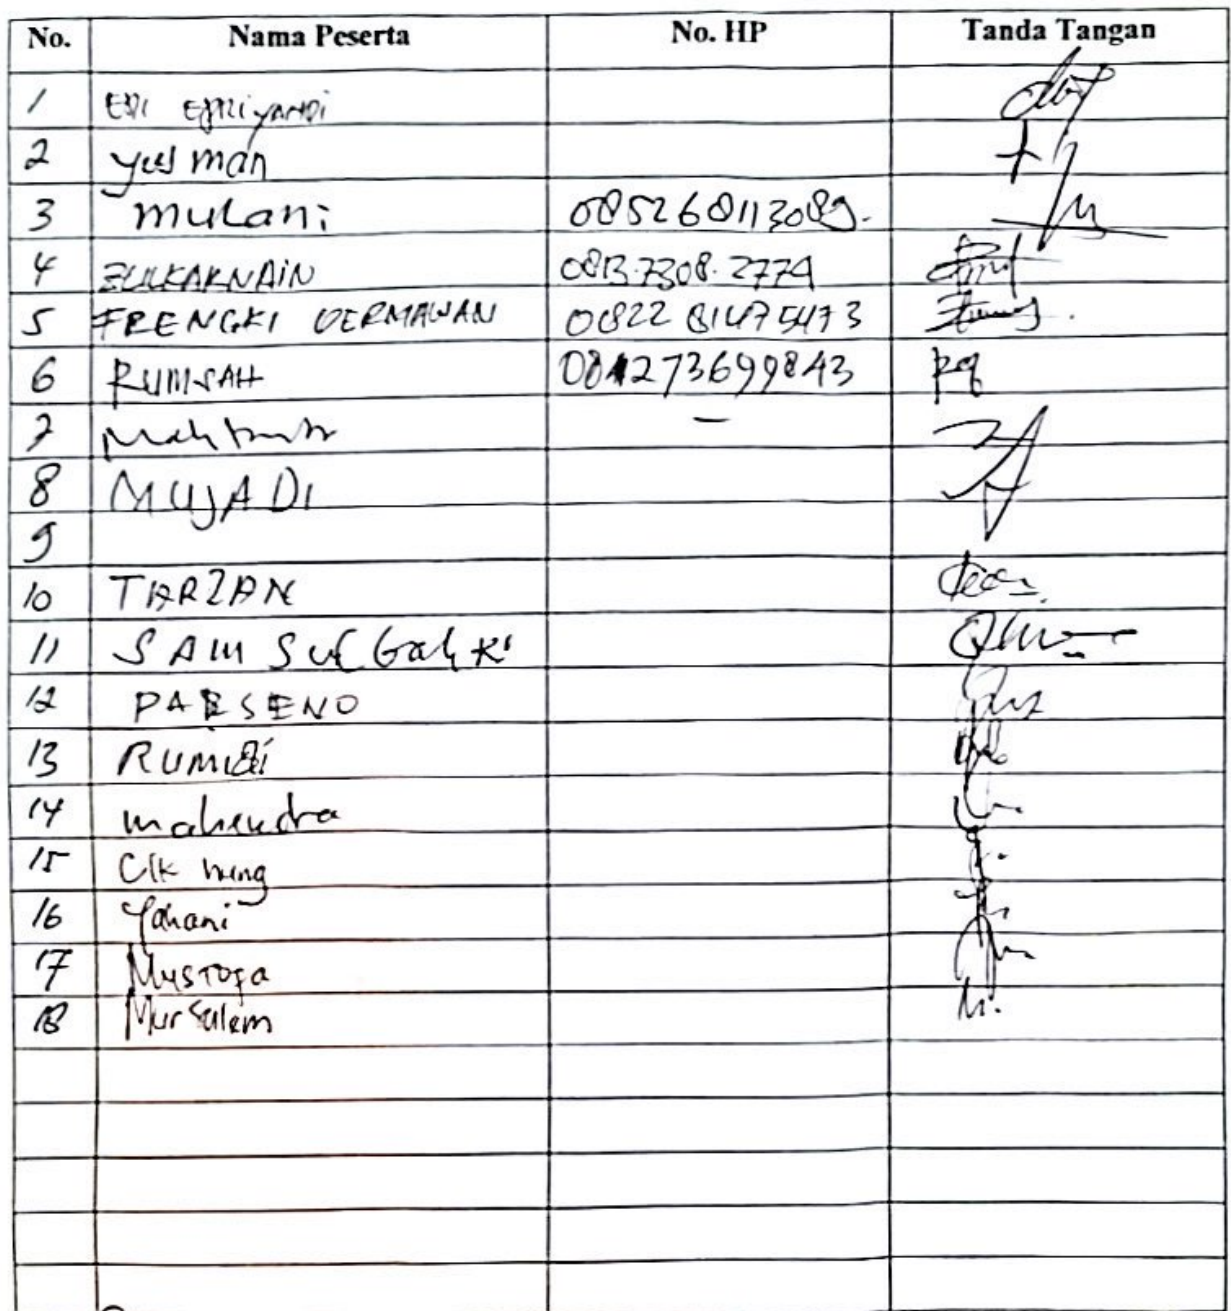 No. Nama Peserta No. HP Tanda Tangan
1 EDI EFRIYANDI
2 Yusman
3 mulani 085268113089.
4 ZULKARNAIN 0813.7308.2774
5 FRENGKI DERMAWAN 0822 81475473
6 RUMSAH 081273699843
7 –
8 MUJADI
9
10 TARZAN
11 SAMSUL
12 PARSENO
13 RUMIDI
14 mahendra
15 Cik
16 Yahani
17 Mustofa
18 Mursalem